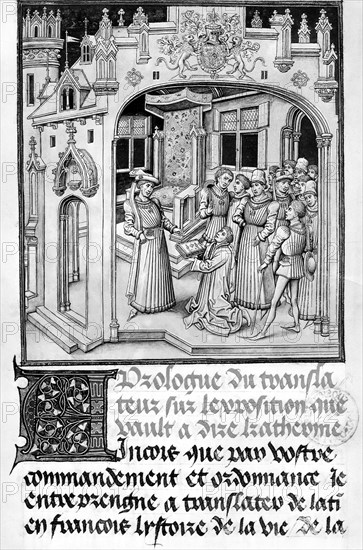 Prologue du transla
teur sur lexposition que
vault a dire katherine
Aincois que par vostre
commandement et ordonnance Je
entreprengne a translater de lati
en francois lystoire de la vie de la